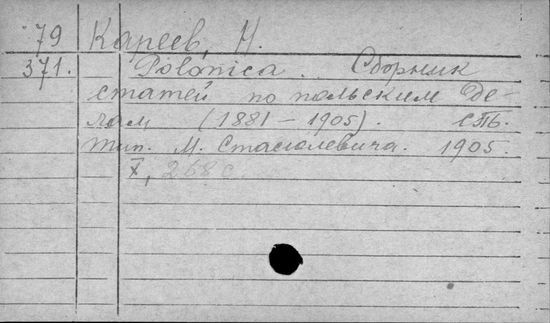 79 Кареев, Н.
371. Polonica. Сборник
статей по польским де-
лам (1881 - 1905). СПБ.
тип. М. Стасюлевича. 1905.
X, 268 с.